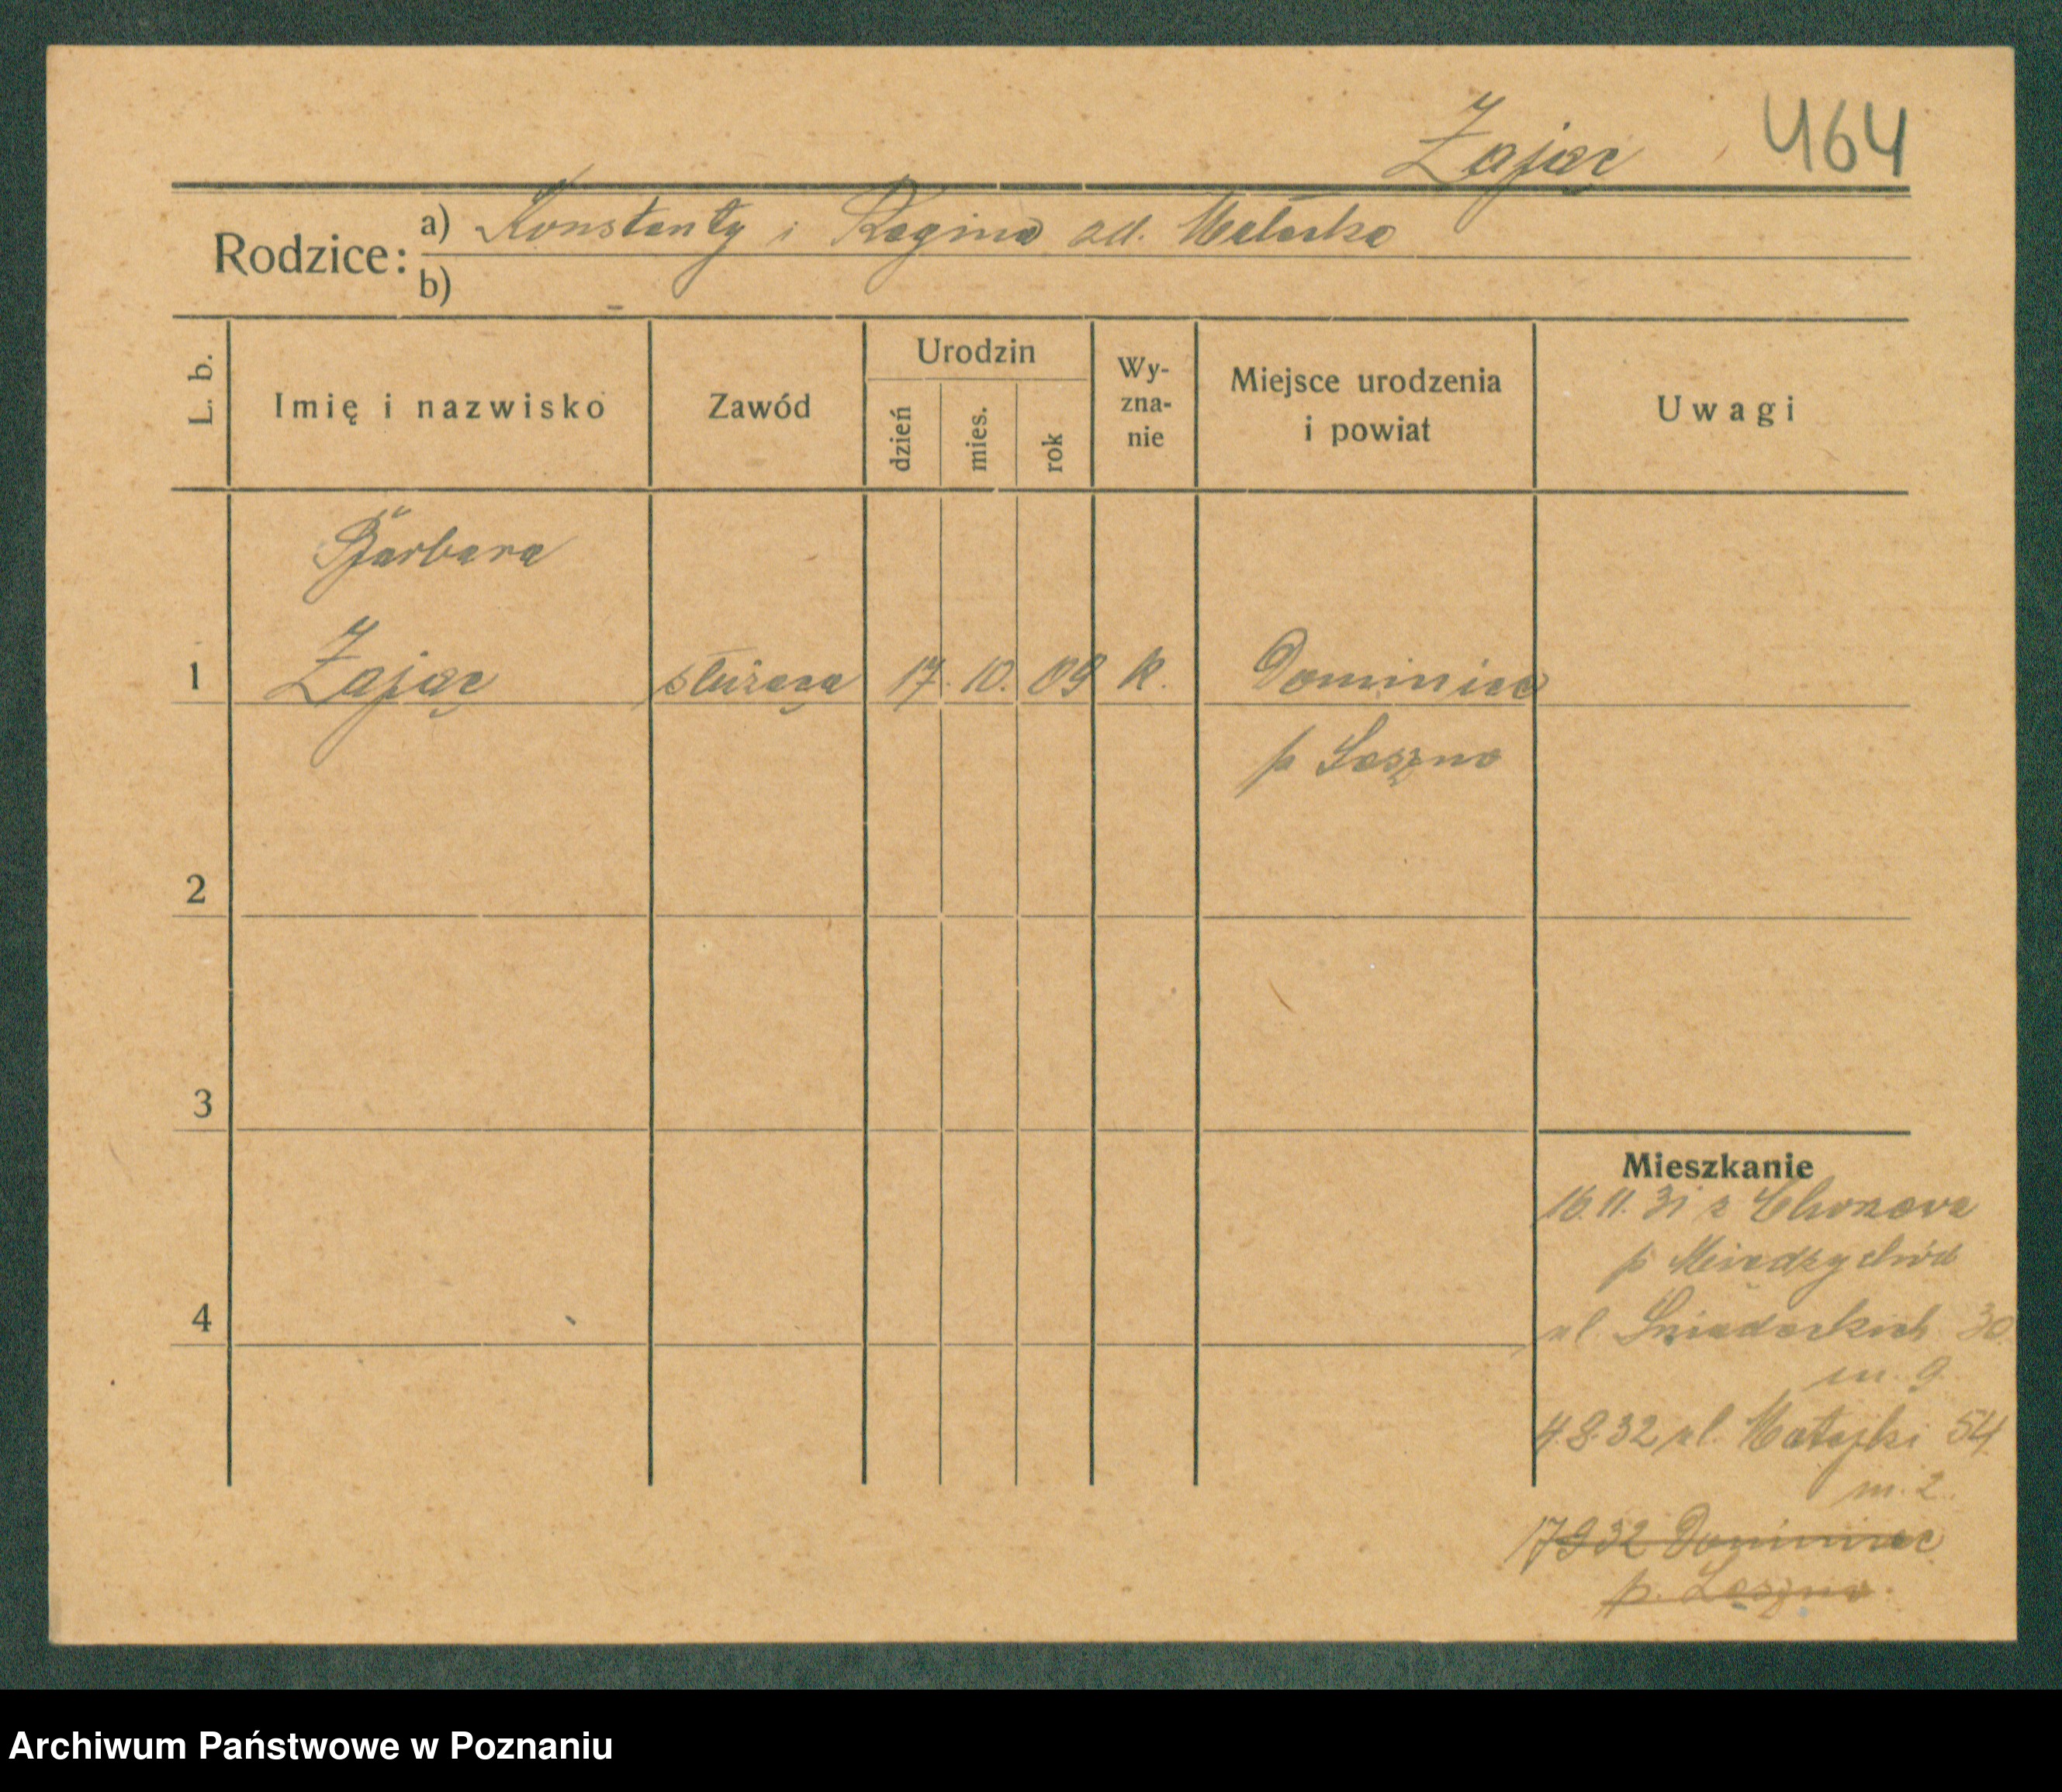 Zając 464
Rodzice: a) Konstanty i Regina od. Matuska
b)
L. b. Imię i nazwisko Zawód Urodzin dzień mies. rok Wy-zna-nie Miejsce urodzenia i powiat Uwagi
Barbara
1 Zając służąca 17. 10. 09 K. Dominice
p Leszno
2
3
Mieszkanie
16.11.31 z
p Międzychód
4
ul. Śniadeckich 30
m. 9
4.8.32 ul. Matejki 54
m. 2.
17932 Dominice
p. Leszno
Archiwum Państwowe w Poznaniu